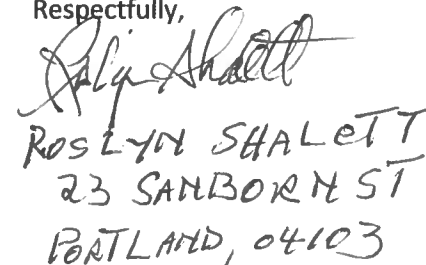 Respectfully,
Roslyn Shalett
ROSLYN SHALETT
23 SANBORN ST
PORTLAND, 04103